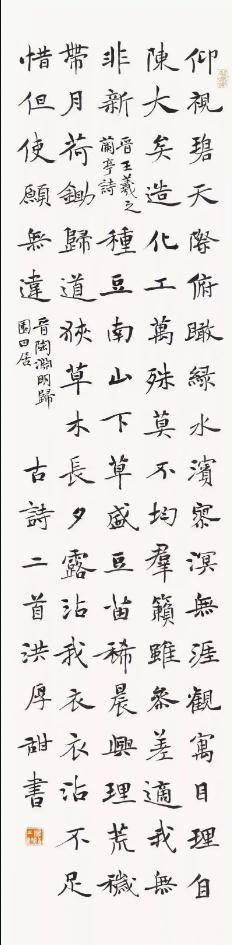 仰視碧天際俯瞰綠水濱寥溟無涯觀寓目理自
陳大矣造化工萬殊莫不均羣籟雖參差適我無
非新晉王羲之蘭亭詩種豆南山下草盛豆苗稀晨興理荒穢
帶月荷鋤歸道狹草木長夕露沾我衣衣沾不足
惜但使願無違晉陶淵明歸園田居古詩二首洪厚甜書